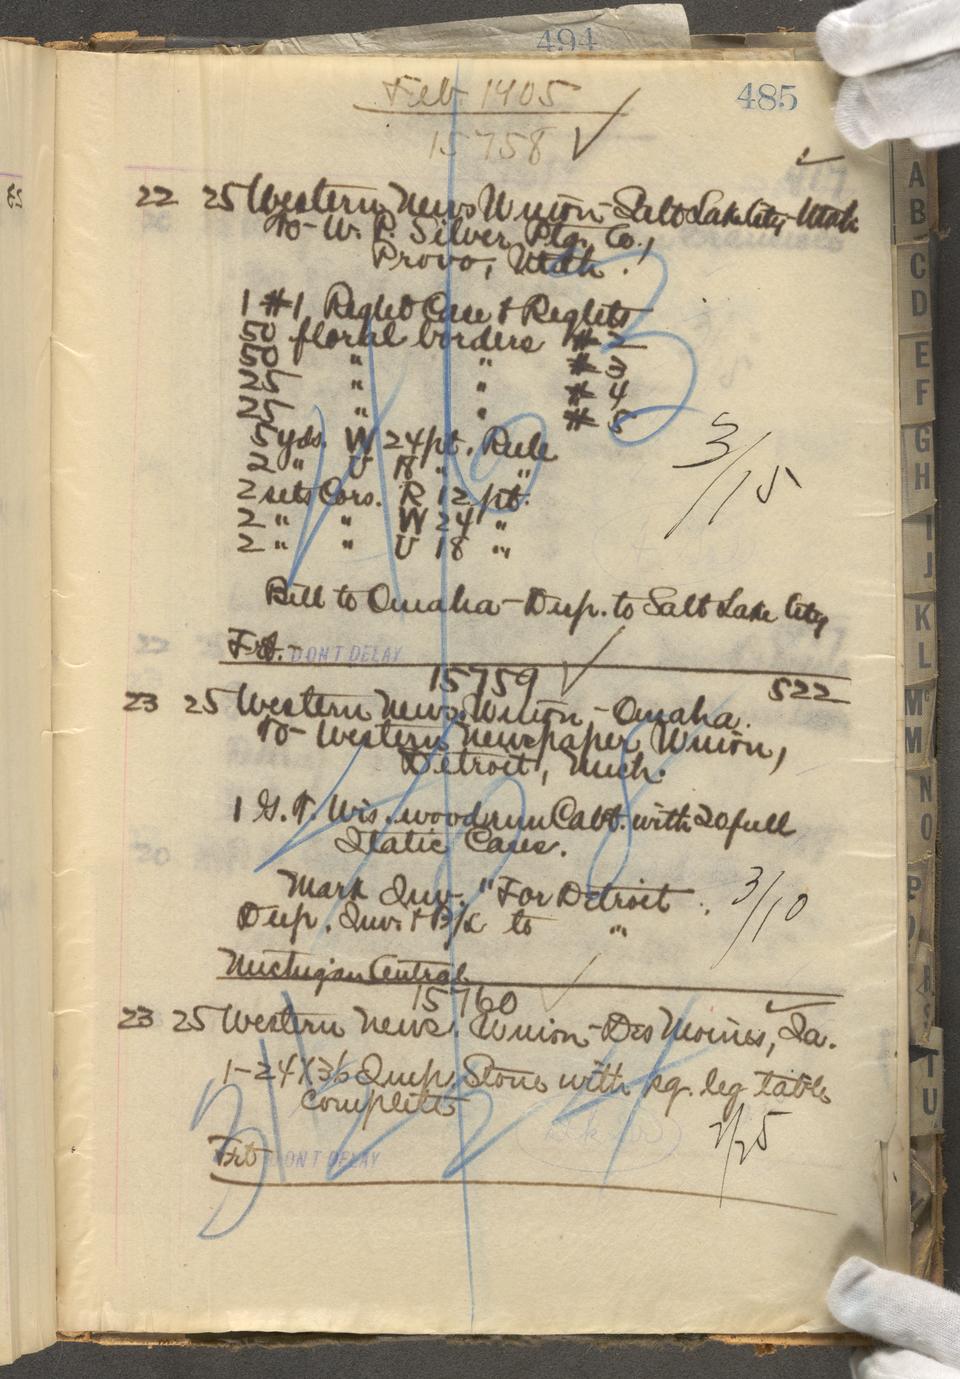 494
485
Feb. 1905
15758 ✓
22 25 Western News. Union - Salt Lake City - Utah
To - W. P. Silver Ptg. Co.,
Provo, Utah.
1 #1 Reglet Case & Reglets
50 floral borders #2
50 " " #3
25 " " #4
25 " " #5
5 yds. W 24 pt. Rule
2 " U 18 " "
2 sets Cors. R 12 pt.
2 " " W 24 "
2 " " U 18 "
3/15
Bill to Omaha - Dup. to Salt Lake City
Frt. DON'T DELAY
15759 ✓ 522
23 25 Western News. Union, - Omaha.
To - Western Newspaper Union,
Detroit, Mich.
1 G. T. Wis. wood run Cabt. with 20 full
Italic Cases.
Mark Inv. "For Detroit"
Dup. Inv. & B/L to "
3/10
Michigan Central
15760 ✓
23 25 Western News. Union - Des Moines, Ia.
1 - 24 X 36 Imp. Stone with sq. leg table
complete
2/25
Frt DON'T DELAY
A
B
C
D
E
F
G
H
I
J
K
L
Mc
M
N
O
P
R
S
T
U